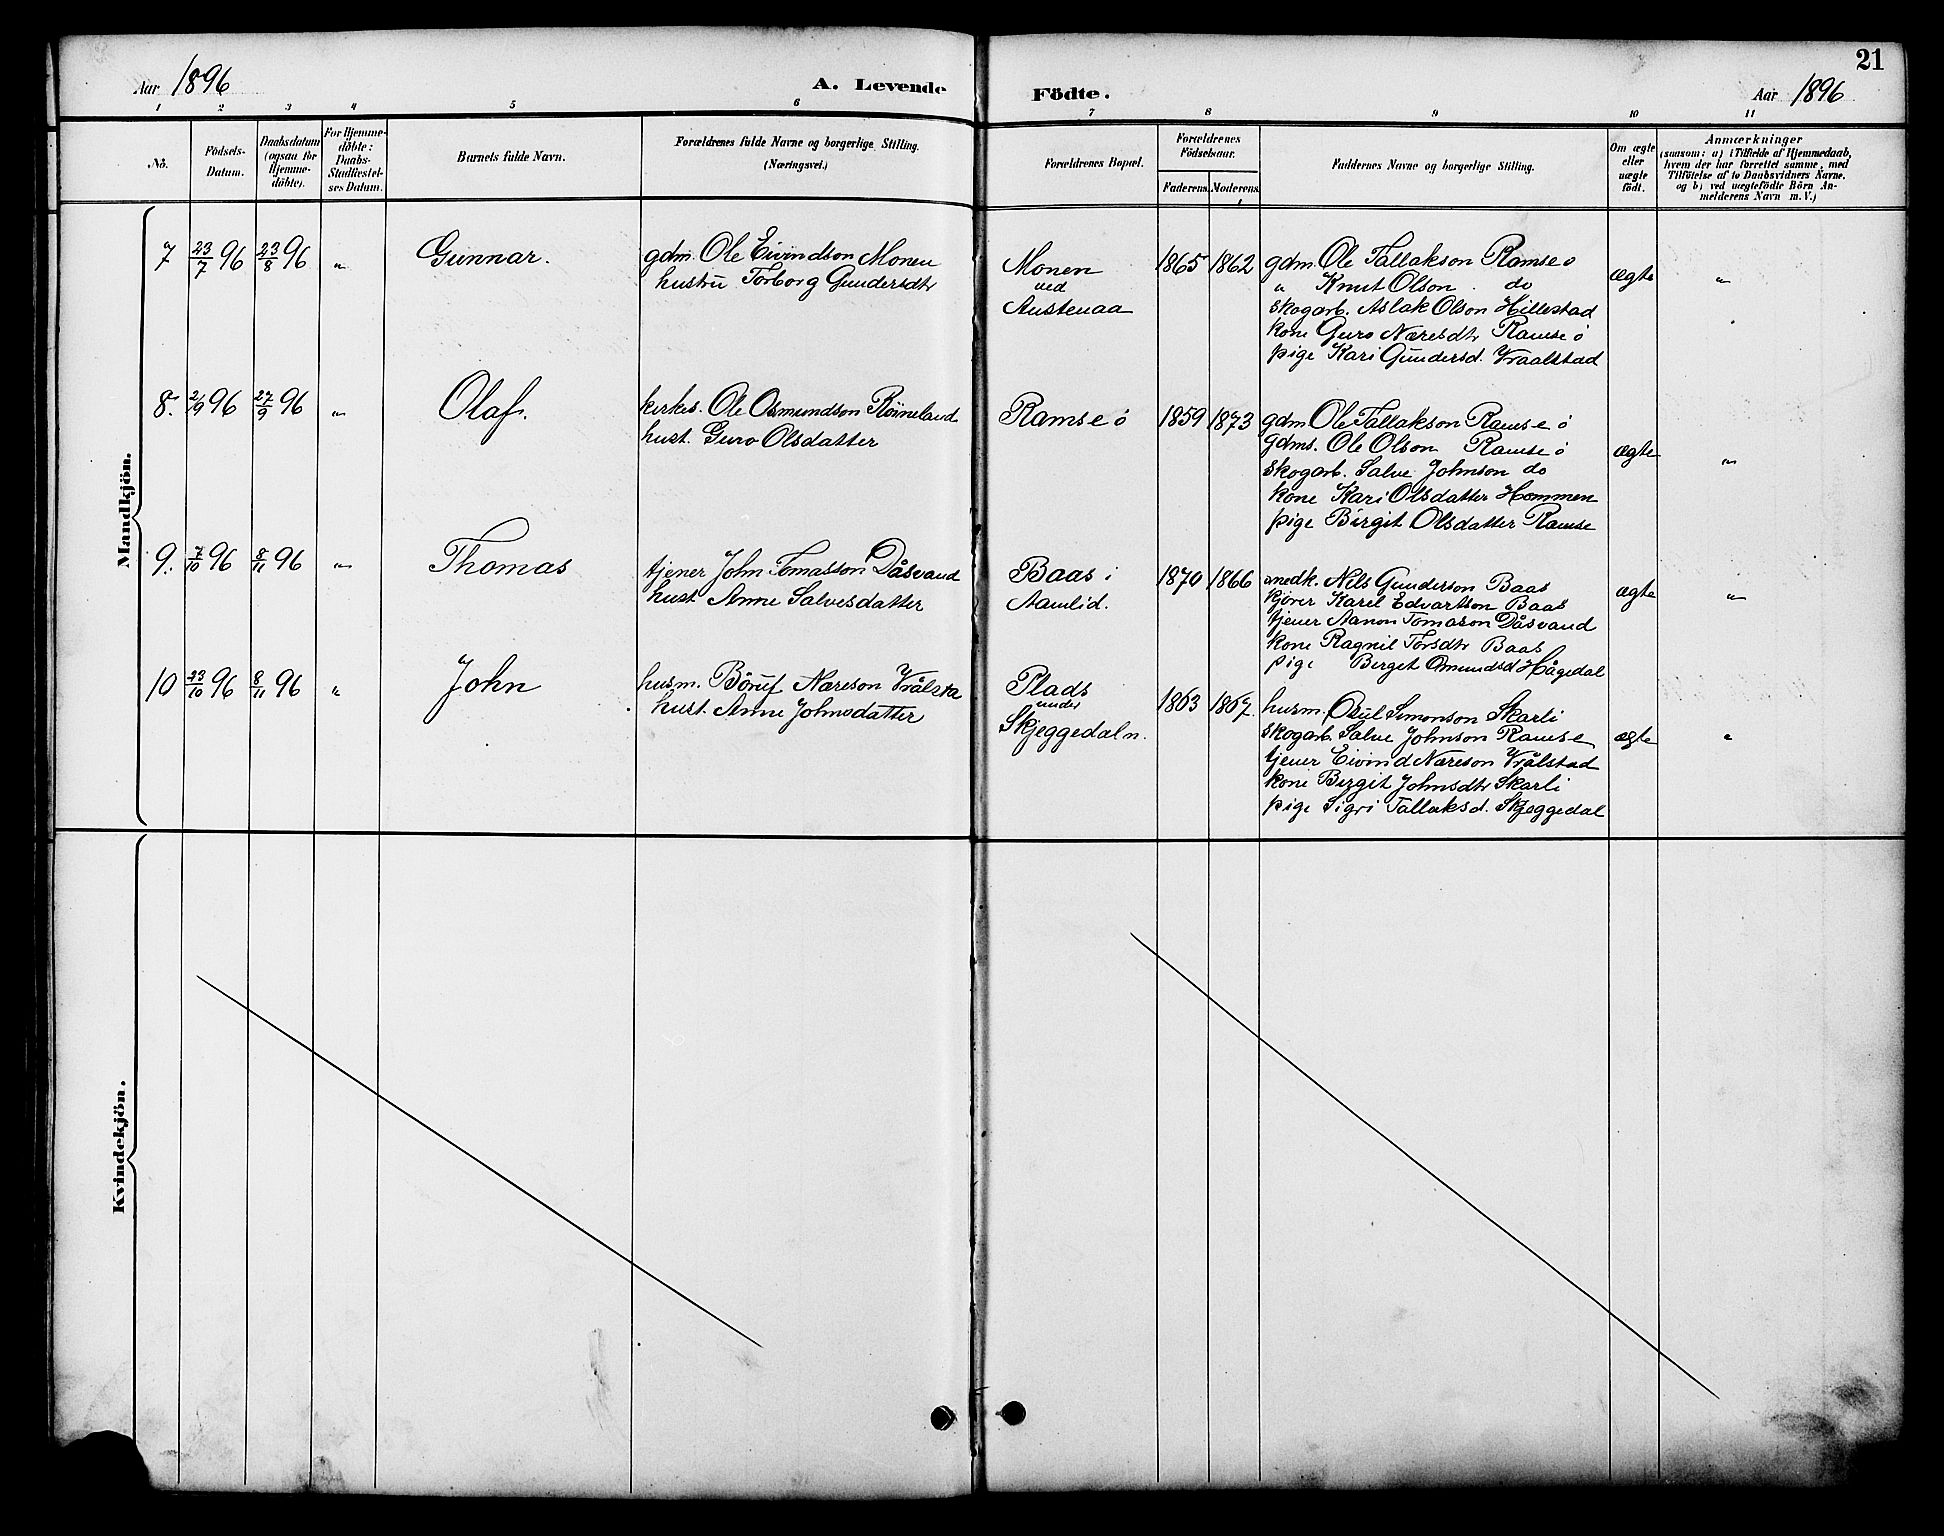 21
Aar 1896
A. Levende Födte.
Aar 1896
1 2 3 4 5 6 7 8 9 10 11
No.
Födsels-
Datum.
Daabsdatum
(ogsaa for
Hjemme-
döbte).
For Hjemme-
döbte:
Daabs-
Stadfæstel-
ses Datum.
Barnets fulde Navn.
Forældrenes fulde Navne og borgerlige Stilling.
(Næringsvei.)
Forældrenes Bopæl.
Forældrenes
Födselsaar.
Faderens. Moderens.
Faddernes Navne og borgerlige Stilling.
Om ægte
eller
uægte
födt.
Anmærkninger
(saasom: a) i Tilfælde af Hjemmedaab,
hvem der har forrettet samme, med
Tilföielse af to Daabsvidners Navne.
og b) ved uægtefödte Börn An-
melderens Navn m. V.)
Mandkjön.
7 23/7 96 23/8 96 " Gunnar.
gdm. Ole Eivindson Monen
hustru Torborg Gundersdtr
Monen
ved
Austenaa
1865 1862
gdm. Ole Tallakson Ramse ö
" Knut Olson do
Skogarb. Aslak Olson Hillestad
kone Guro Næresdtr Ramse ö
pige Kari Gundersd. Vraalstad
ægte "
8. 2/9 96 27/9 96 " Olaf.
kirkes. Ole Osmundson Röineland
hust. Guro Olsdatter
Ramse ö
1859 1873
gdm Ole Tallakson Ramse ö
gdms. Ole Olson Ramse ö
Skogarb. Salve Johnson do
kone Kari Olsdatter Hommen
pige Birgit Olsdatter Ramse
ægte "
9. 7/10 96 8/11 96 " Thomas
tjener John Tomasson Dåsvand
hust. Anne Salvesdatter
Baas i
Aamlid.
1870 1866
medk. Nils Gunderson Baas
kjörer Karel Edvartson Baas
tjener Aanon Tomason Dåsvand
kone Ragnil Torsdtr Baas
pige Birget Omundsd Hågedal
ægte "
10 23/10 96 8/11 96 " John
husm. Næreson Vrålsta
hust. Anne Johnsdatter
Plads
under
Skjeggedaln.
1863 1867.
husm. Osul Simonson Skarli
Skogarb. Salve Johnson Ramse
tjener Eivind Næreson Vrålstad
kone Birgit Johnsdtr Skarli
pige Sigri Tallaksd. Skjeggedal
ægte "
Kvindekjön.